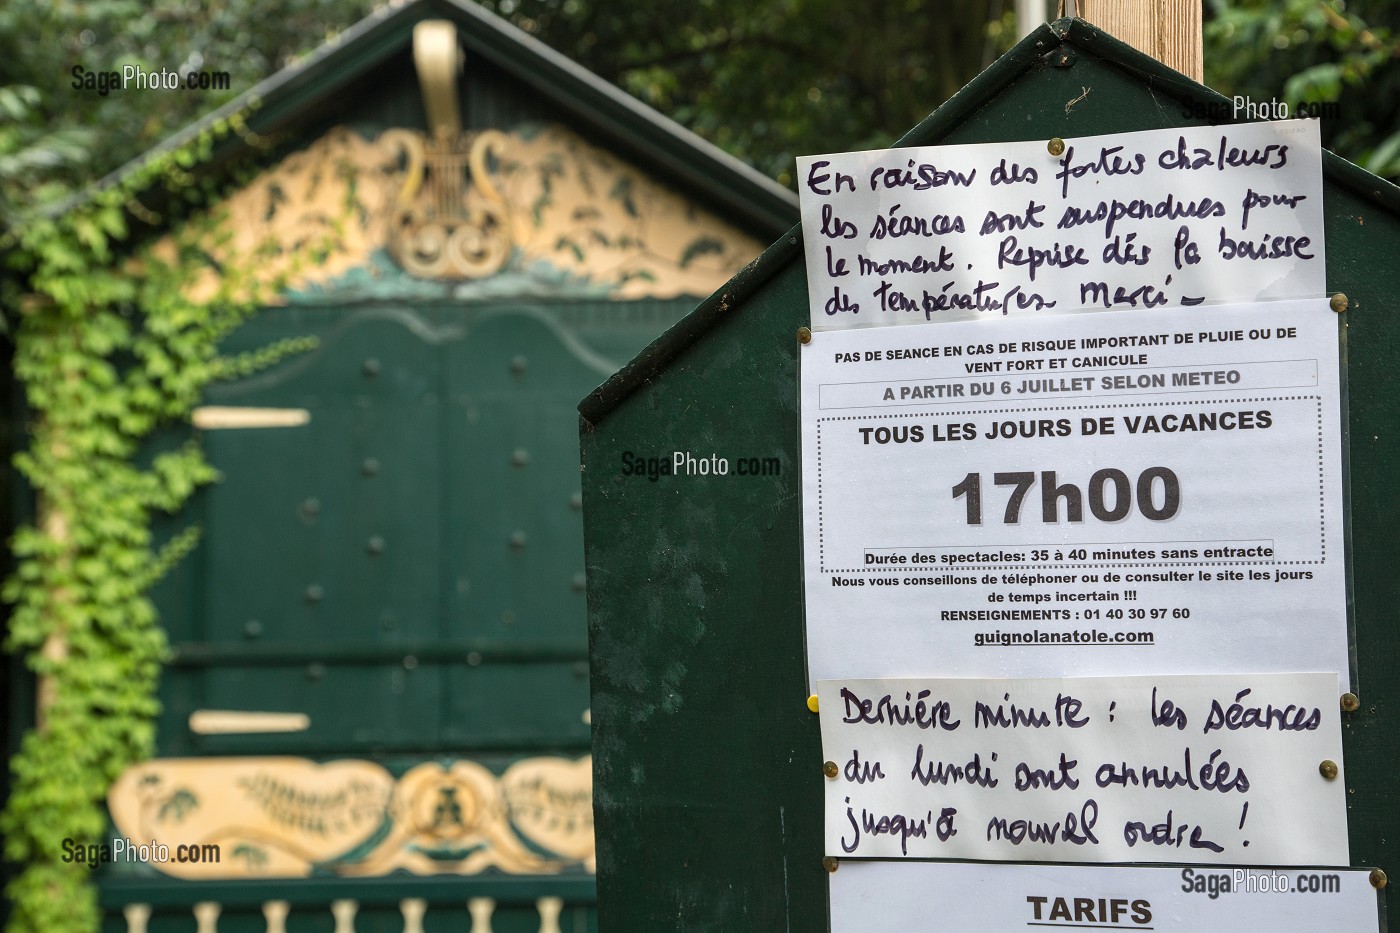 SagaPhoto.com
SagaPhoto.com
En raison des fortes chaleurs
les séances sont suspendues pour
le moment. Reprise dès la baisse
des températures Merci -
PAS DE SEANCE EN CAS DE RISQUE IMPORTANT DE PLUIE OU DE
VENT FORT ET CANICULE
A PARTIR DU 6 JUILLET SELON METEO
TOUS LES JOURS DE VACANCES
SagaPhoto.com
17h00
Durée des spectacles: 35 à 40 minutes sans entracte
Nous vous conseillons de téléphoner ou de consulter le site les jours
de temps incertain !!!
RENSEIGNEMENTS : 01 40 30 97 60
guignolanatole.com
Dernière minute : les séances
du lundi sont annulées
jusqu'à nouvel ordre !
SagaPhoto.com
SagaPhoto.com
TARIFS